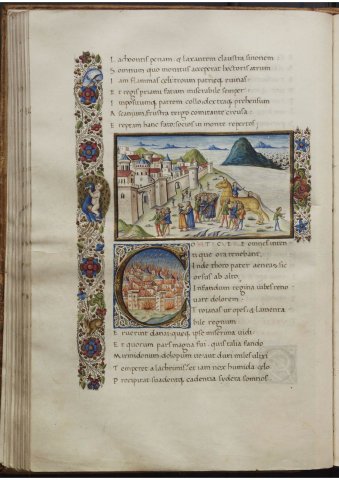 L achoontis penam. q laxantem claustra sinonem
S omnium quo monitus acceperat hectoris atrium
I am flammas celi troum patriq ruinas
E t regis priami fatum miserabile semper
I mpositumq patrem collo dextraq prehensum
A scanium frustra tergo comitante creusa
E reptam hanc fato socios in monte repertos
CONTICVERE omnes inten
ti que ora tenebant.
I nde thoro pater aeneas sic
orsus ab alto.
I nfandum regina iubes reno
uare dolorem.
T roianas ut opes: & lamenta
bile regnum
E ruerint danai: queq ipse miserima uidi
E t quorum pars magna fui. quis talia fando
M irmidonum dolopum ue: aut duri miles ulixi
T emperet a lachrimis: et iam nox humida celo
P recipitat suadentq cadentia sydera somnos